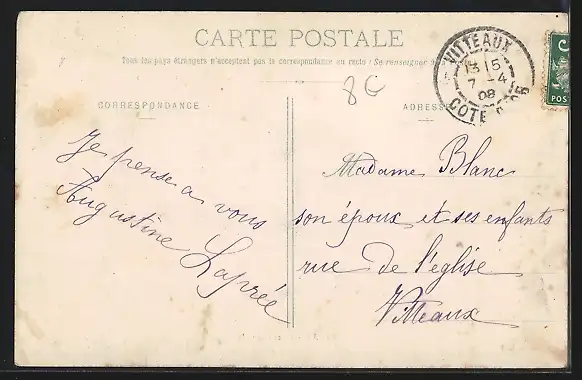 CARTE POSTALE
Tous les pays étrangers n'acceptent pas la correspondance au recto (Se renseigner à
8€
VITTEAUX
13 15
7 - 4
08
COTE D'OR
POS
CORRESPONDANCE
ADRESSE
Je pense a vous
Augustine Laprée
Madame Blanc
son époux et ses enfants
rue de l'église
Vitteaux